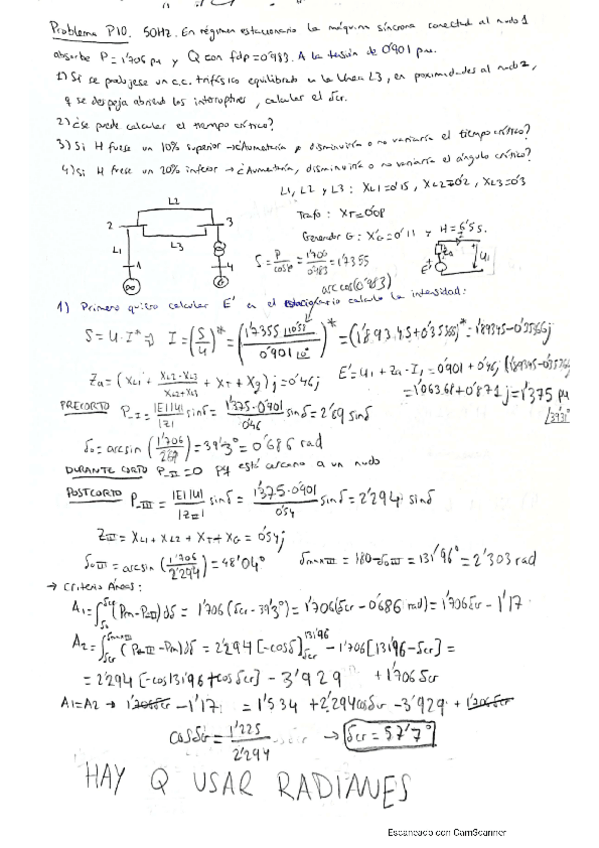 Problema P10. 50Hz. En régimen estacionario la máquina síncrona conectada al nudo 1
absorbe P = 1'706 pu y Q con fdp = 0'983. A la tensión de 0'901 pu.
1) Si se produjese un c.c. trifásico equilibrado en la línea L3, en proximidades al nudo 2,
y se despeja abriendo los interruptores, calcular el δcr.
2) ¿Se puede calcular el tiempo crítico?
3) Si H fuese un 10% superior → ¿Aumentaría, disminuiría o no variaría el tiempo crítico?
4) Si H fuese un 20% inferior → ¿Aumentaría, disminuiría o no variaría el ángulo crítico?
L1, L2 y L3: XL1 = 0'15, XL2 = 0'2, XL3 = 0'3
Trafo: XT = 0'08
Generador G: X'G = 0'11 y H = 6'5 s.
L2
2
3
L3
L1
1
4
∞
G
S = P/cosφ = 1'706/0'983 = 1'7355
E'
U1
arccos(0'983)
1) Primero quiero calcular E' en el estacionario calculo la intensidad:
S = U·I* ⇒ I = (S/U)* = (1'7355 /0'901)* = (1'89345+0'35366j)* = 1'89345-0'35366j
Za = (XL1 + XL2·XL3/(XL2+XL3) + XT + Xg) j = 0'46j
E' = U1 + Za·I1 = 0'901 + 0'46j (1'89345-0'35366j)
= 1'06368+0'871j = 1'375 pu
PRECORTO P_I = |E||U|/|Z| sinδ = 1'375·0'901/0'46 sinδ = 2'69 sinδ
δo = arcsin (1'706/2'69) = 39'3° = 0'686 rad
DURANTE CORTO P_II = 0 pq está cercano a un nudo
POSTCORTO P_III = |E||U|/|Z| sinδ = 1'375·0'901/0'54 sinδ = 2'294 sinδ
ZIII = XL1 + XL2 + XT + XG = 0'54j
δoIII = arcsin (1'706/2'294) = 48'04°
δmaxIII = 180-δoIII = 131'96° = 2'303 rad
→ Criterio Áreas:
A1 = ∫ (Pm-PeII)dδ = 1'706 (δcr - 39'3°) = 1'706(δcr - 0'686 rad) = 1'706δcr - 1'17
A2 = ∫ (PeIII - Pm)dδ = 2'294 [-cosδ] - 1'706[131'96-δcr] =
= 2'294 [-cos131'96+cosδcr] - 3'929 + 1'706δcr
A1=A2 → 1'706δcr - 1'17 = 1'534 + 2'294cosδcr - 3'929 + 1'706δcr
cosδcr = 1'225/2'294 → δcr = 57'7°
HAY Q USAR RADIANES
Escaneado con CamScanner